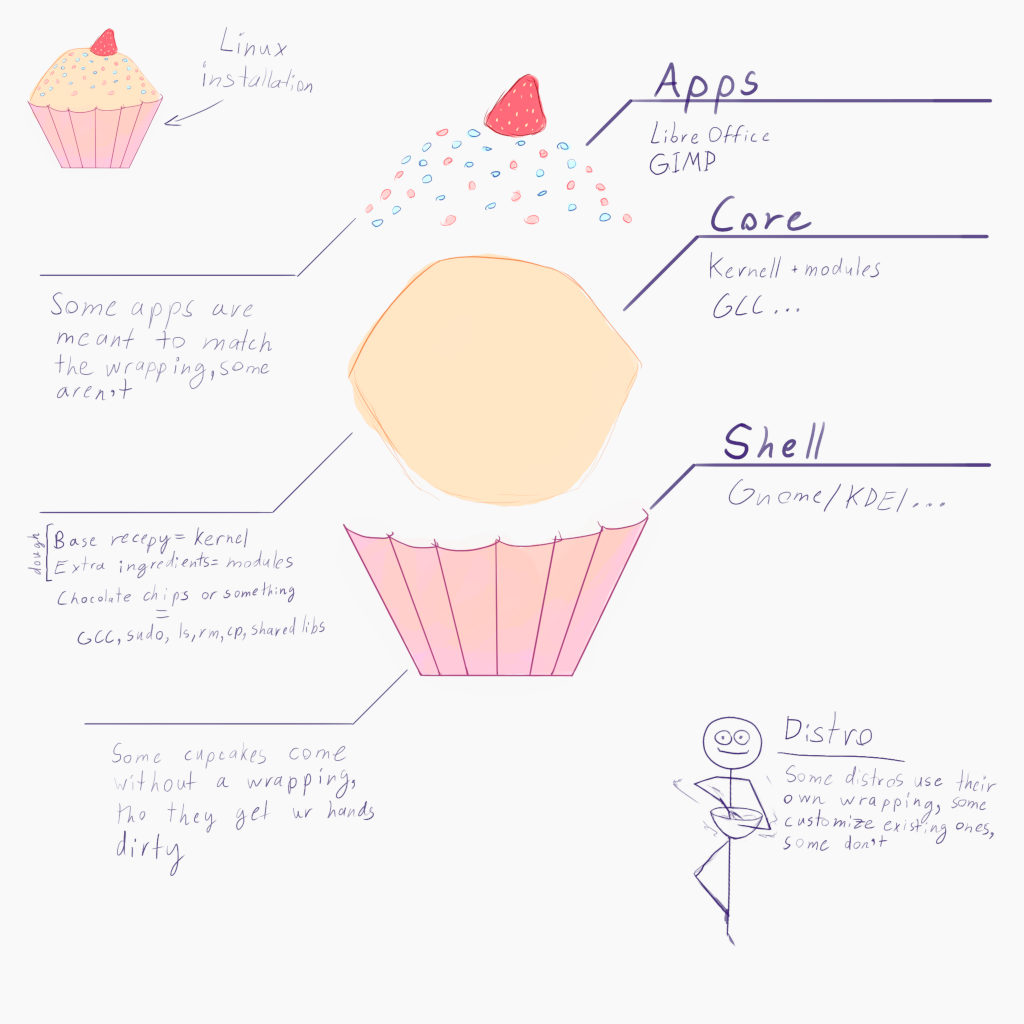 Linux
installation
Apps
Libre Office
GIMP
Core
Kernell + modules
GCC ...
Shell
Gnome/KDE/...
Some apps are
meant to match
the wrapping, some
aren't
dough
Base recepy = kernel
Extra ingredients = modules
Chocolate chips or something
=
GCC, sudo, ls, rm, cp, shared libs
Some cupcakes come
without a wrapping,
tho they get ur hands
dirty
Distro
Some distros use their
own wrapping, some
customize existing ones,
some don't